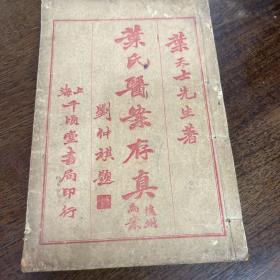 葉天士先生著
葉氏醫案存真
劉仲祺題
上海千頃堂書局印行